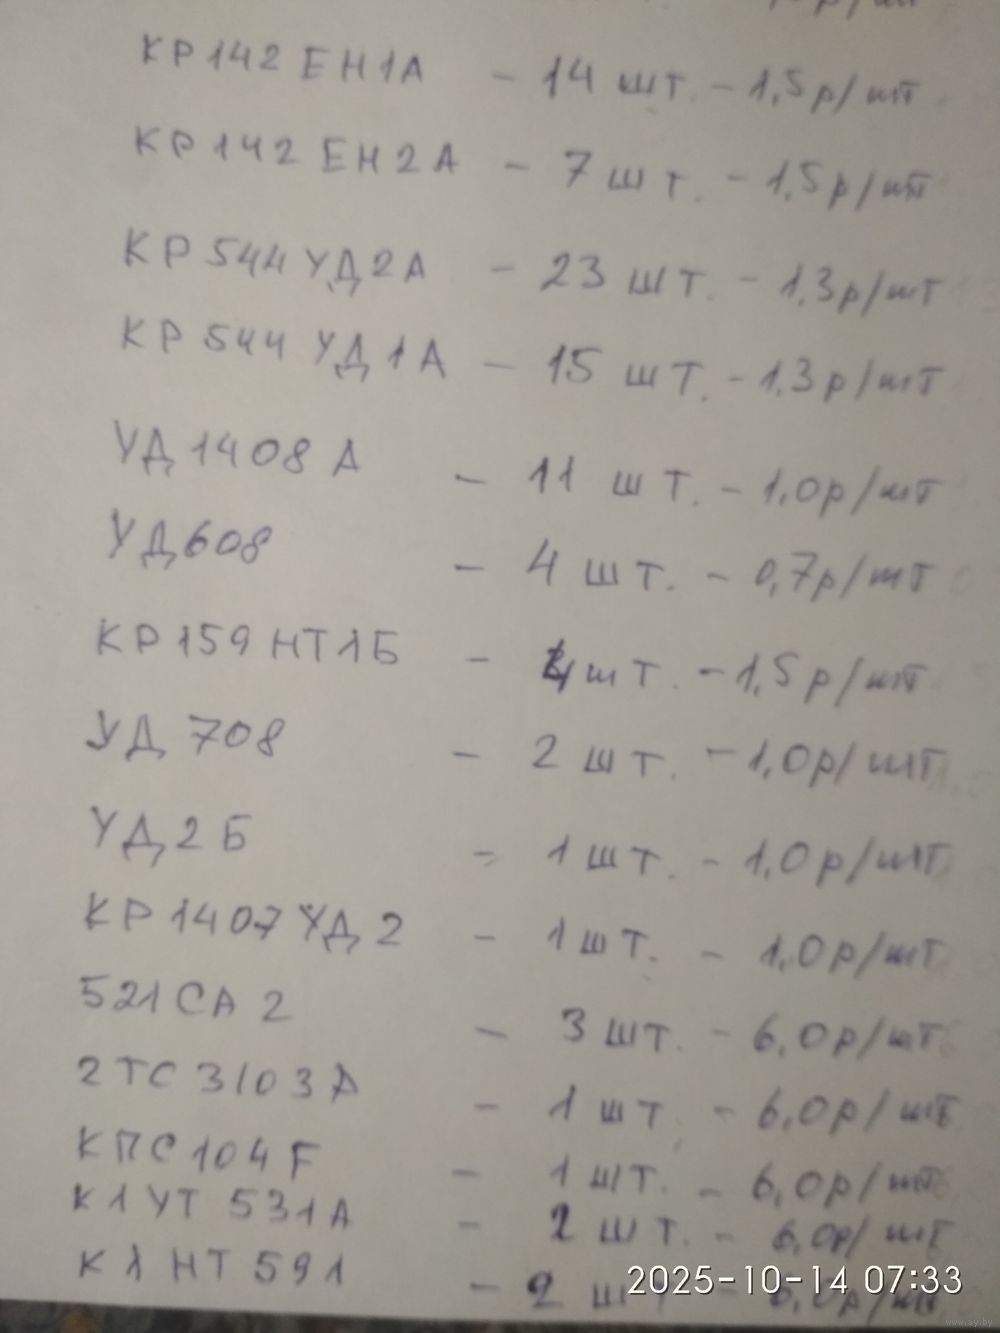 КР142ЕН1А - 14 шт. - 1,5р/шт
КР142ЕН2А - 7 шт. - 1,5р/шт
КР544УД2А - 23 шт. - 1,3р/шт
КР544УД1А - 15 шт. - 1,3р/шт
УД1408А - 11 шт. - 1,0р/шт
УД608 - 4 шт. - 0,7р/шт
КР159НТ1Б - 4 шт. - 1,5р/шт
УД708 - 2 шт. - 1,0р/шт
УД2Б - 1 шт. - 1,0р/шт
КР1407УД2 - 1 шт. - 1,0р/шт
521СА2 - 3 шт. - 6,0р/шт
2ТС3103А - 1 шт. - 6,0р/шт
КПС104F - 1 шт. - 6,0р/шт
К1УТ531А - 2 шт. - 6,0р/шт
К1НТ591 - 2 ш - 6,0р/шт
2025-10-14 07:33
www.ay.by